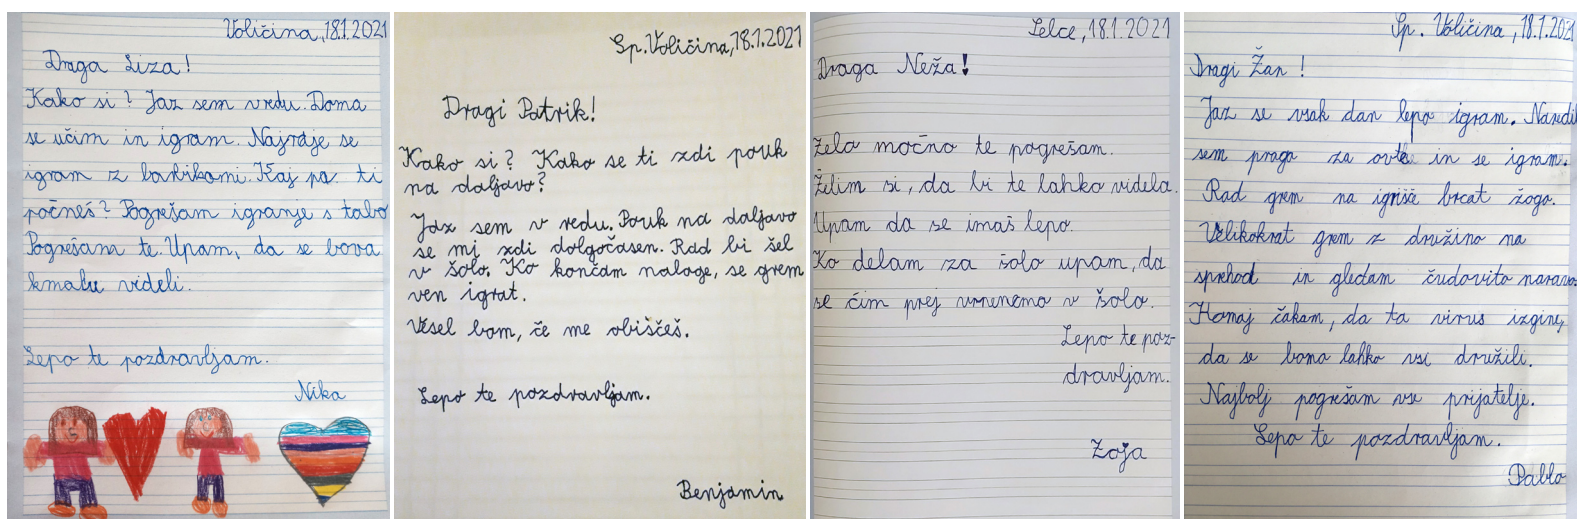 Voličina, 18.1.2021
Draga Liza!
Kako si? Jaz sem vredu. Doma
se učim in igram. Najrdje se
igram z barbikami. Kaj pa ti
počneš? Pogrešam igranje s tabo
Pogrešam te. Upam, da se bova
kmalu videli.
Lepo te pozdravljam.
Nika
Sp. Voličina, 18.1.2021
Dragi Patrik!
Kako si? Kako se ti zdi pouk
na daljavo?
Jaz sem v redu. Pouk na daljavo
se mi zdi dolgočasen. Rad bi šel
v šolo. Ko končam naloge, se grem
ven igrat.
Vesel bom, če me obiščeš.
Lepo te pozdravljam.
Benjamin
Selce, 18.1.2021
Draga Neža!
Zelo močno te pogrešam.
Želim si, da bi te lahko videla.
Upam da se imaš lepo.
Ko delam za šolo upam, da
se čim prej vrnemo v šolo.
Lepo te poz-
dravljam.
Zoja
Sp. Voličina, 18.1.2021
Dragi Žan!
Jaz se vsak dan lepo igram. Naredil
sem progo za avte in se igram.
Rad grem na igrišče brcat žogo.
Velikokrat grem z družino na
sprehod in gledam čudovito naravo.
Komaj čakam, da ta virus izgine,
da se bomo lahko vsi družili.
Najbolj pogrešam vse prijatelje.
Lepo te pozdravljam.
Pablo